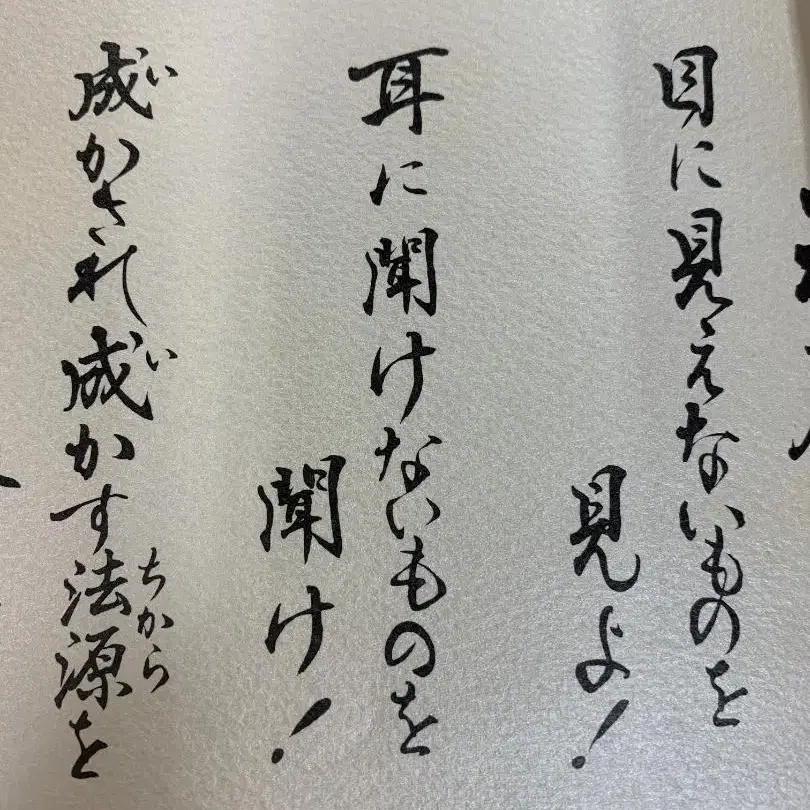 目に見えないものを
見よ!
耳に聞けないものを
聞け!
成かされ成かす法源を
い
い
ちから